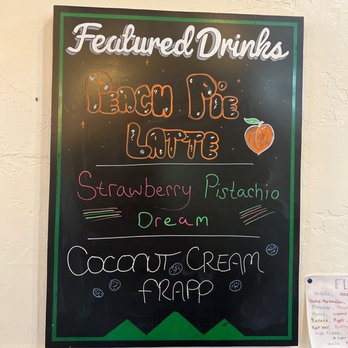 Featured Drinks
PEACH PiE
LATTE
Strawberry Pistachio
Dream
COCONUT CREAM
FRAPP
FL